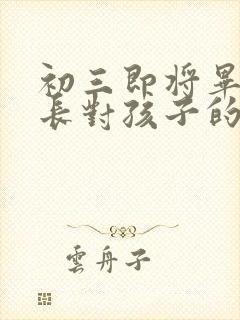 初三即将畢
長對孩子的
雲舟子